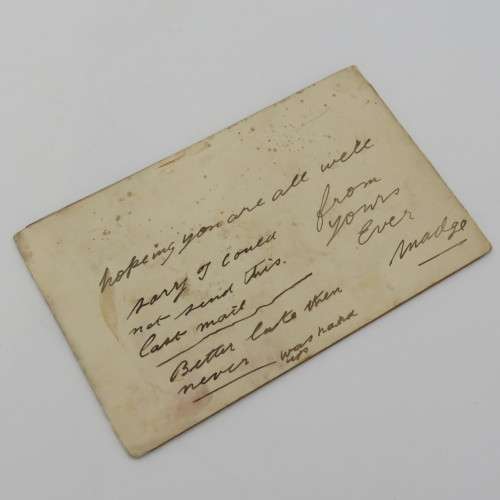 hopeing you are all well
from
yours
Ever
Madge
sory I could
not send this.
last mail
Better late then
never was hard
up